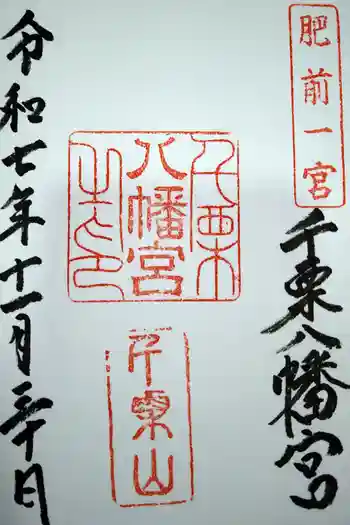 肥前一宮
千栗八幡宮
千栗
八幡宮
之印
千栗山
令和七年十一月三十日